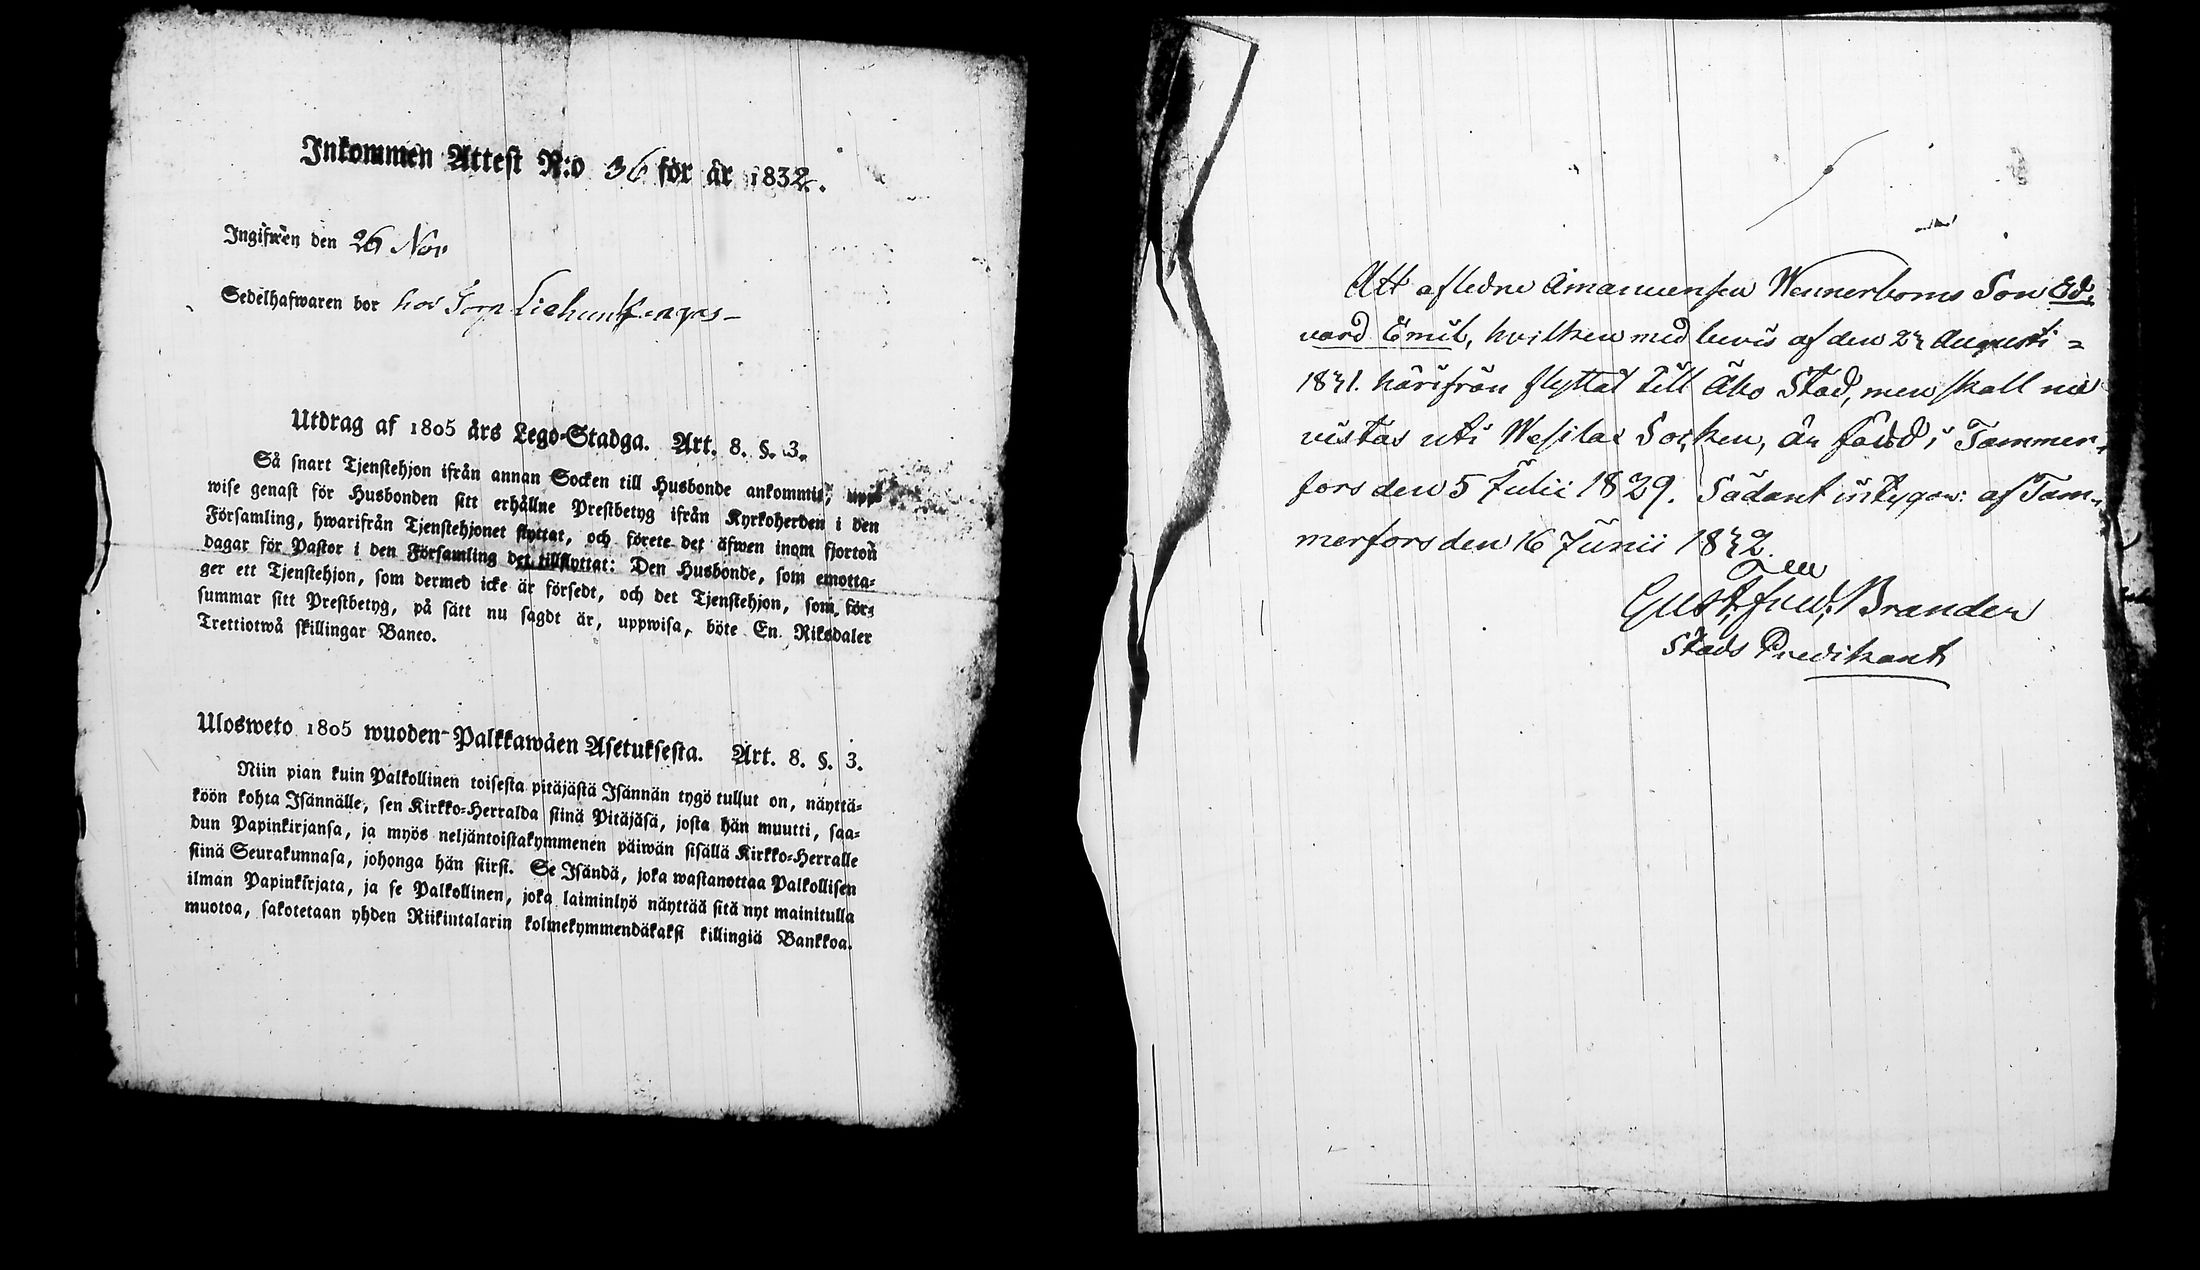 Inkommen Attest N:o 36 för år 1832.
Ingifwen den 26 Nov
Sedelhafwaren bor hos
Utdrag af 1805 års Lego-Stadga. Art. 8. §. 3.
Så snart Tjenstehjon ifrån annan Socken till Husbonde ankommit, upp-
wise genast för Husbonden sitt erhållne Prestbetyg ifrån Kyrkoherden i den
Församling, hwarifrån Tjenstehjonet flyttat, och förete det äfwen inom fjorton
dagar för Pastor i den Församling det tillflyttat: Den Husbonde, som emotta-
ger ett Tjenstehjon, som dermed icke är försedt, och det Tjenstehjon, som för-
summar sitt Prestbetyg, på sätt nu sagdt är, uppwisa, böte En Riksdaler
Trettiotwå skillingar Banco.
Ulosweto 1805 wuoden Palkkawäen Asetuksesta. Art. 8. §. 3.
Niin pian kuin Palkollinen toisesta pitäjästä Isännän tygö tullut on, näyttä-
köön kohta Isännälle, sen Kirkko-Herralda siinä Pitäjäsä, josta hän muutti, saa-
dun Papinkirjansa, ja myös neljäntoistakymmenen päiwän sisällä Kirkko-Herralle
siinä Seurakunnasa, johonga hän siirsi. Se Isändä, joka wastanottaa Palkollisen
ilman Papinkirjata, ja se Palkollinen, joka laiminlyö näyttää sitä nyt mainitulla
muotoa, sakotetaan yhden Riikintalarin kolmekymmendäkaksi killingiä Bankkoa.
Att afledne Amanuensen Wennerboms Son Ed-
vard Emil, hvilken med bevis af den 23 Augusti
1831. härifrån flyttat till Åbo Stad, men skall nu
vistas uti Wesilax Socken, är född i Tammer-
fors den 5 Julii 1829. Sådant intygar: af Tam-
merfors den 16 Junii 1832.
Gust. Brander
Stads Predikant